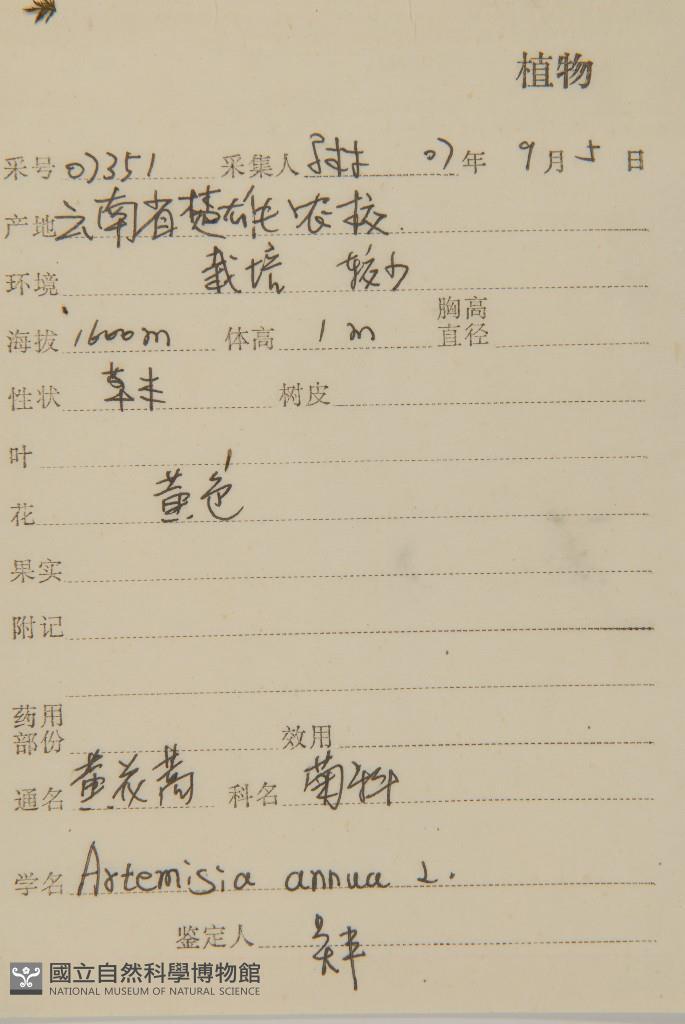 植物
采号 07351 采集人 07年 9月 5日
产地 云南省楚雄农校
环境 栽培 较少
海拔 1600m 体高 1m 胸高直径
性状 草本 树皮
叶
花 黄色
果实
附记
药用部份 效用
通名 黄花蒿 科名 菊科
学名 Artemisia annua L.
鉴定人
國立自然科學博物館
NATIONAL MUSEUM OF NATURAL SCIENCE